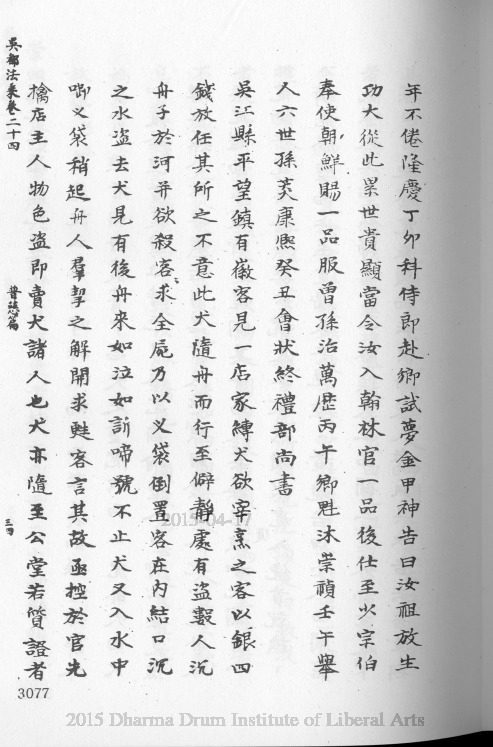 年不倦隆慶丁夘科侍郎赴鄉試夢金甲神告曰汝祖放生
功大從此累世貴顯當令汝入翰林官一品後仕至少宗伯
奉使朝鮮賜一品服曾孫治萬歷丙午鄉魁沐崇禎壬午舉
人六世孫菼康熙癸丑會狀終禮部尚書
吳江縣平望鎮有徽客見一店家縛犬欲宰烹之客以銀四
錢放任其所之不意此犬隨舟而行至僻靜處有盜數人沉
舟子於河并欲殺客客求全屍乃以义袋倒置客在內結口沉
之水盜去犬見有後舟來如泣如訴啼號不止犬又入水中
啣义袋稍起舟人羣挈之解開求甦客言其故亟控於官先
擒店主人物色盜即賣犬諸人也犬亦隨至公堂若質證者
吳都法乘卷二十四
普慈篇
三四
3077
2015-04-17
2015 Dharma Drum Institute of Liberal Arts